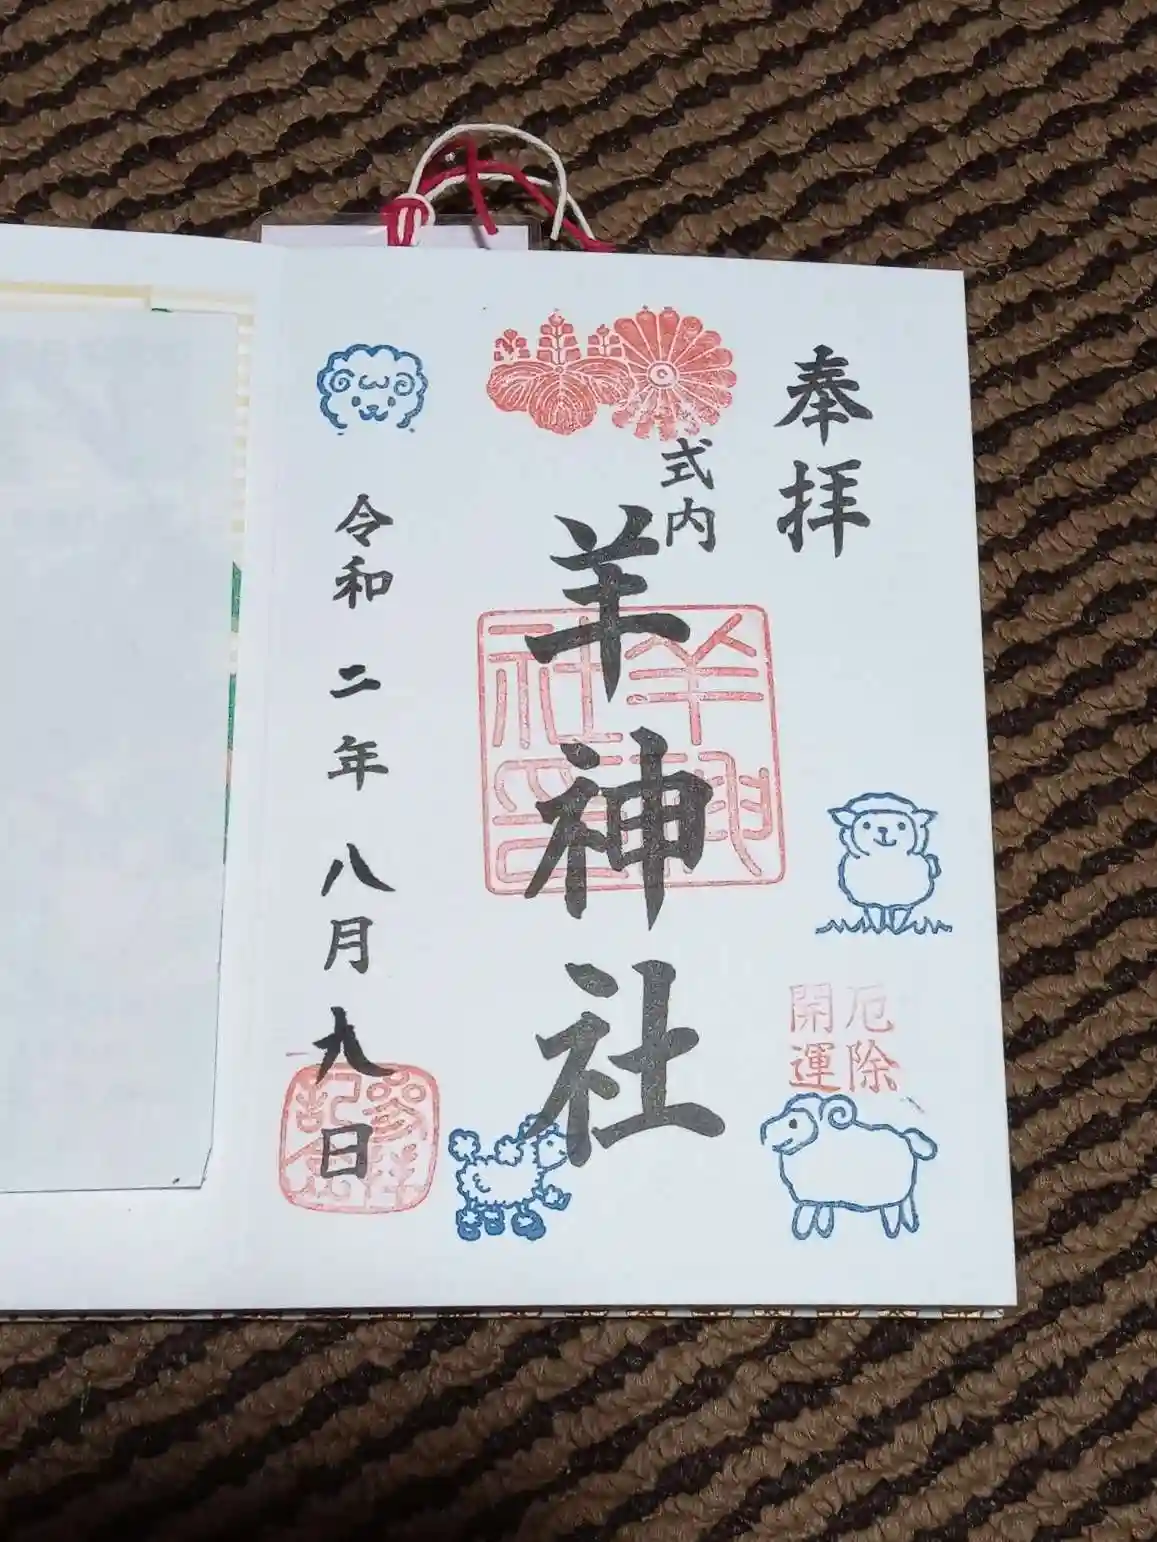 奉拝
式内
羊神社
羊神社印
厄除
開運
令和二年八月九日
参拝記念